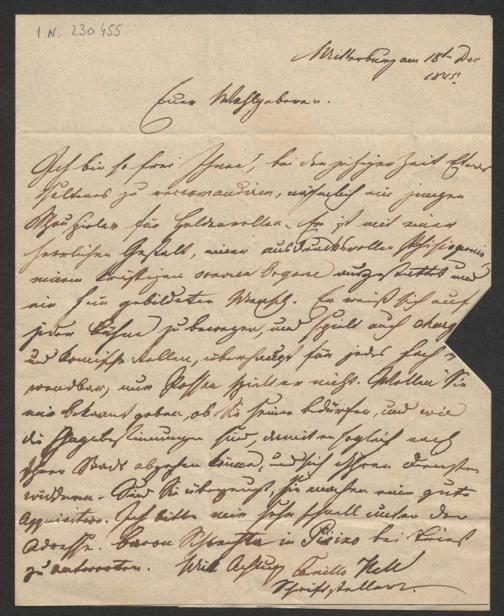 I.N. 230455
Mitterburg am 18t Dec
1845.
Euer Wohlgeboren.
Ich bin so frei Ihnen, bei der jetzigen Zeit Etwas
Seltenes zu recomandiren, nähmlich ein jungen
Schauspieler für Heldenrollen. Er ist mit einer
herrlichen Gestalt, einer ausdrucksvollen Phisiognomie
einem kräftigen sonoren Organe ausgestattet und
ein fein gebildeter Mensch. Er weiß sich auf
jeder Bühne zu bewegen, und spielt auch
und komische Rollen, überhaupt für jedes Fach
wendbar, nur Possen spielt er nicht. Wollen Sie
mir bekannt geben, ob Sie seiner bedürfen, und wie
die Gagebestimmungen sind, damit er sogleich nach
Ihrer Stadt abgehen könne, und sich Ihren Diensten
widmen. Sind Sie überzeugt Sie machen eine gute
Aqquisition. Ich bitte mir sehr schnell unter der
Adresse. Baron in Pisino bei Triest
zu antworten. Mit Achtung Camillo Hell
Schriftsteller.